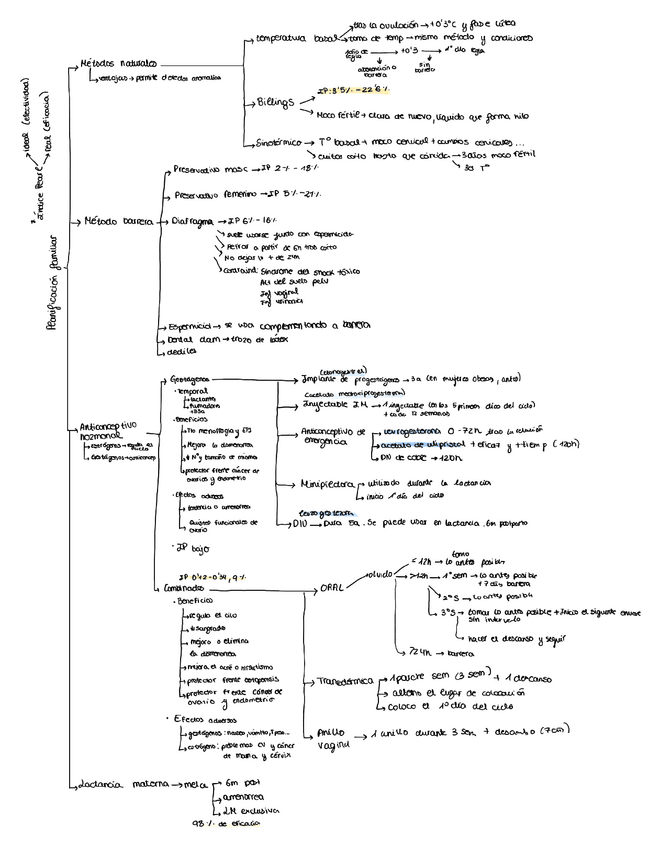 Planificación familiar
Índice Pearl
ideal (efectividad)
real (eficacia)
Métodos naturales
ventajas → permite detectar anomalías
temperatura basal
tras la ovulación → +0'3°C y fase lútea
toma de temp → mismo método y condiciones
+0'3
abstención o barrera
sin barrera
Billings
IP: 3'5% - 22'6%
Moco fértil + clara de huevo, líquido que forma hilo
Sintotérmico → Tº basal + moco cervical + cambios cervicales...
evitar coito hasta que coincida → 3 días moco fértil
3d Tº
Método barrera
Preservativo masc → IP 2% - 18%
Preservativo femenino → IP 5% - 21%
Diafragma → IP 6% - 16%
suele usarse junto con espermicida
Retirar a partir de 6h tras coito
No dejarlo + de 24h
Contraind: Síndrome del shock tóxico
Alt del suelo pelv
Inf vaginal
Inf urinaria
Espermicida → se usa complementando a barrera
Dental dam → trozo de látex
dediles
Anticonceptivo hormonal
Gestágenos
· Temporal
lactamo
fumadora
+35a
· Beneficios
Mejora la dismenorrea
↓ Nº y tamaño de mioma
protector frente cáncer de ovarios y endometrio
· Efectos adversos
tendencia a amenorrea
Quistes funcionales de ovario
· IP bajo
(etonogestrel)
Implante de progestágenos → 3a (en mujeres obesas, antes)
(acetado medroxiprogesterona)
Inyectable I.M → 1 inyectable (en los 5 primeros días del ciclo)
+ cada 12 semanas
Anticonceptivo de emergencia
0-72h tras la relación
acetato de ulipristal + eficaz y + tiemp (120h)
DIU de cobre → 120h
Minipíldora
utilizado durante la lactancia
inicio 1º día del ciclo
DIU → Dura 5a. Se puede usar en lactancia. 6m postparto
Combinados
· Beneficio
regula el ciclo
↓ sangrado
mejora o elimina la dismenorrea
mejora el acné o hirsutismo
protector frente
protector frente cáncer de ovario y endometrio
· Efectos adversos
gestágenos: nausea, vómito, ↑peso...
estrógeno: problemas CV y cáncer de mama y cérvix
ORAL → olvido
< 12h → lo antes posible
toma
>12h → 1º sem → lo antes posible
+ 7 días barrera
2º S → lo antes posible
3º S → tomar lo antes posible + inicio el siguiente envase sin intervalo
hacer el descanso y seguir
>24h → barrera
Transdérmica
1 parche sem (3 sem) + 1 descanso
alterno el lugar de colocación
coloco el 1º día del ciclo
Anillo vaginal → 1 anillo durante 3 sem + descanso (7d)
Lactancia materna → mela
6m post
amenorrea
LM exclusiva
98% de eficacia